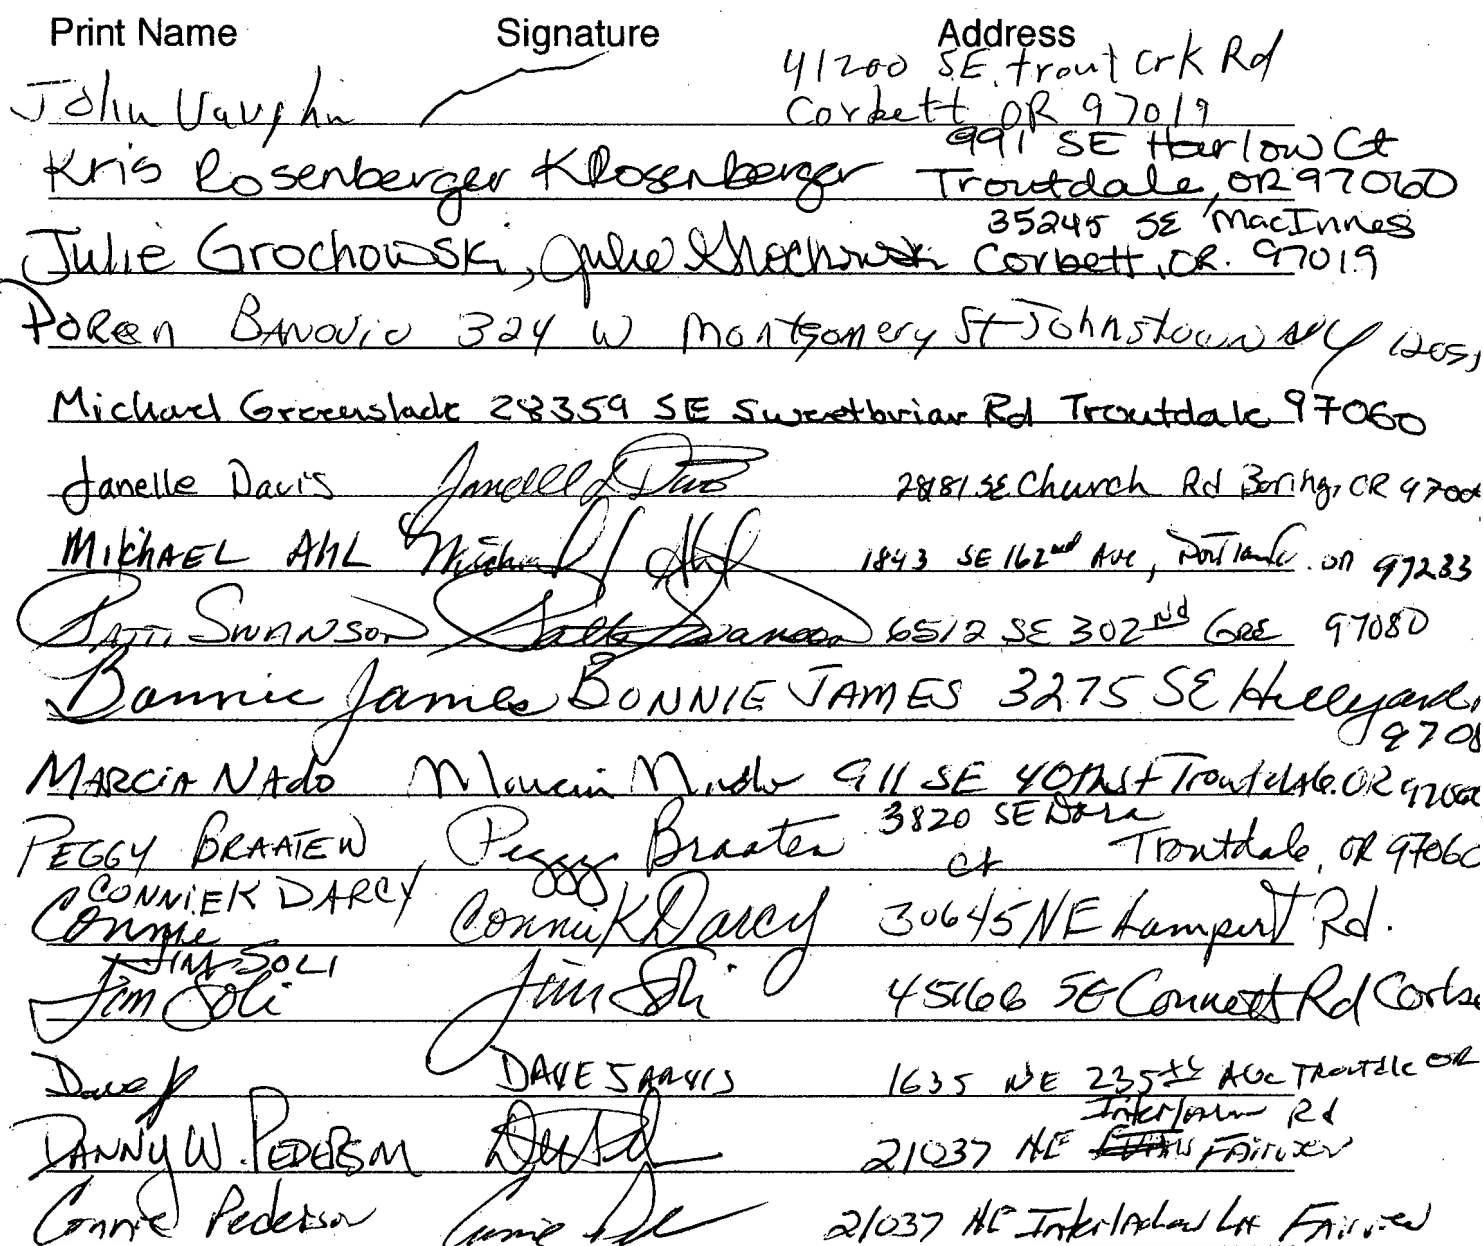 Print Name Signature Address
John Vaughn 41200 SE trout Crk Rd
Corbett OR 97019
Kris Rosenberger KRosenberger 991 SE Harlow Ct
Troutdale, OR 97060
Julie Grochowski, Julie Grochowski 35245 SE MacInnes
Corbett, OR. 97019
Doreen Banovic 324 W Montgomery St Johnstown NY
Michael Greenslade 28359 SE Sweetbriar Rd Troutdale 97060
Janelle Davis Janelle L Davis SE Church Rd Boring, OR
MikhAEL AHL 1843 SE 162nd Ave, Portland OR 97233
Patti Swanson Patti Swanson 6512 SE 302nd Gre 97080
Bonnie James BONNIE JAMES 3275 SE Hillyard
9708
MARCIA NAdo 911 SE 40th St Troutdale OR
PEGGY BRAATEN, Peggy Braaten 3820 SE Dora
Ct Troutdale, OR 97060
CONNIE K DARCY
Connie Connie K Darcy 30645 NE Lampert Rd.
JIM SOLI
Jim Soli Jim Soli SE Connett Rd
Dave J DAVE JARVIS 1635 NE 235th Ave Troutdle OR
Interlachen Rd
DANNY W. PEDERSON 21037 NE Fairview
Connie Pederson 21037 NE Interlachen Ln Fairview